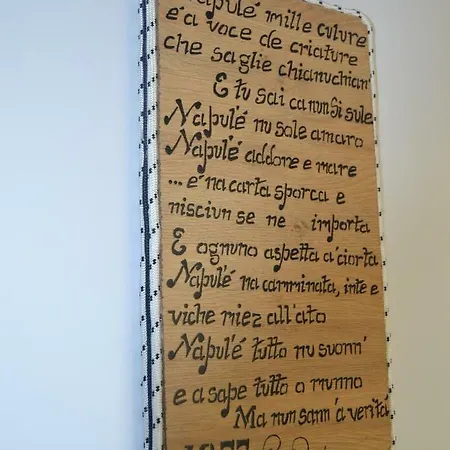 Napulé mille culure
é a voce de criature
che saglie chianuchian'
E tu sai ca nun si sule
Napul'é nu sole amaro
Napul'é addore e mare
... é na carta sporca e
nisciun se ne importa
E ognuno aspetta a' ciorta
Napul'é na camminata, inte e
viche miez all'ato
Napul'é tutto nu suonn'
e a sape tutto o munno
Ma nun sann' a verità
1977